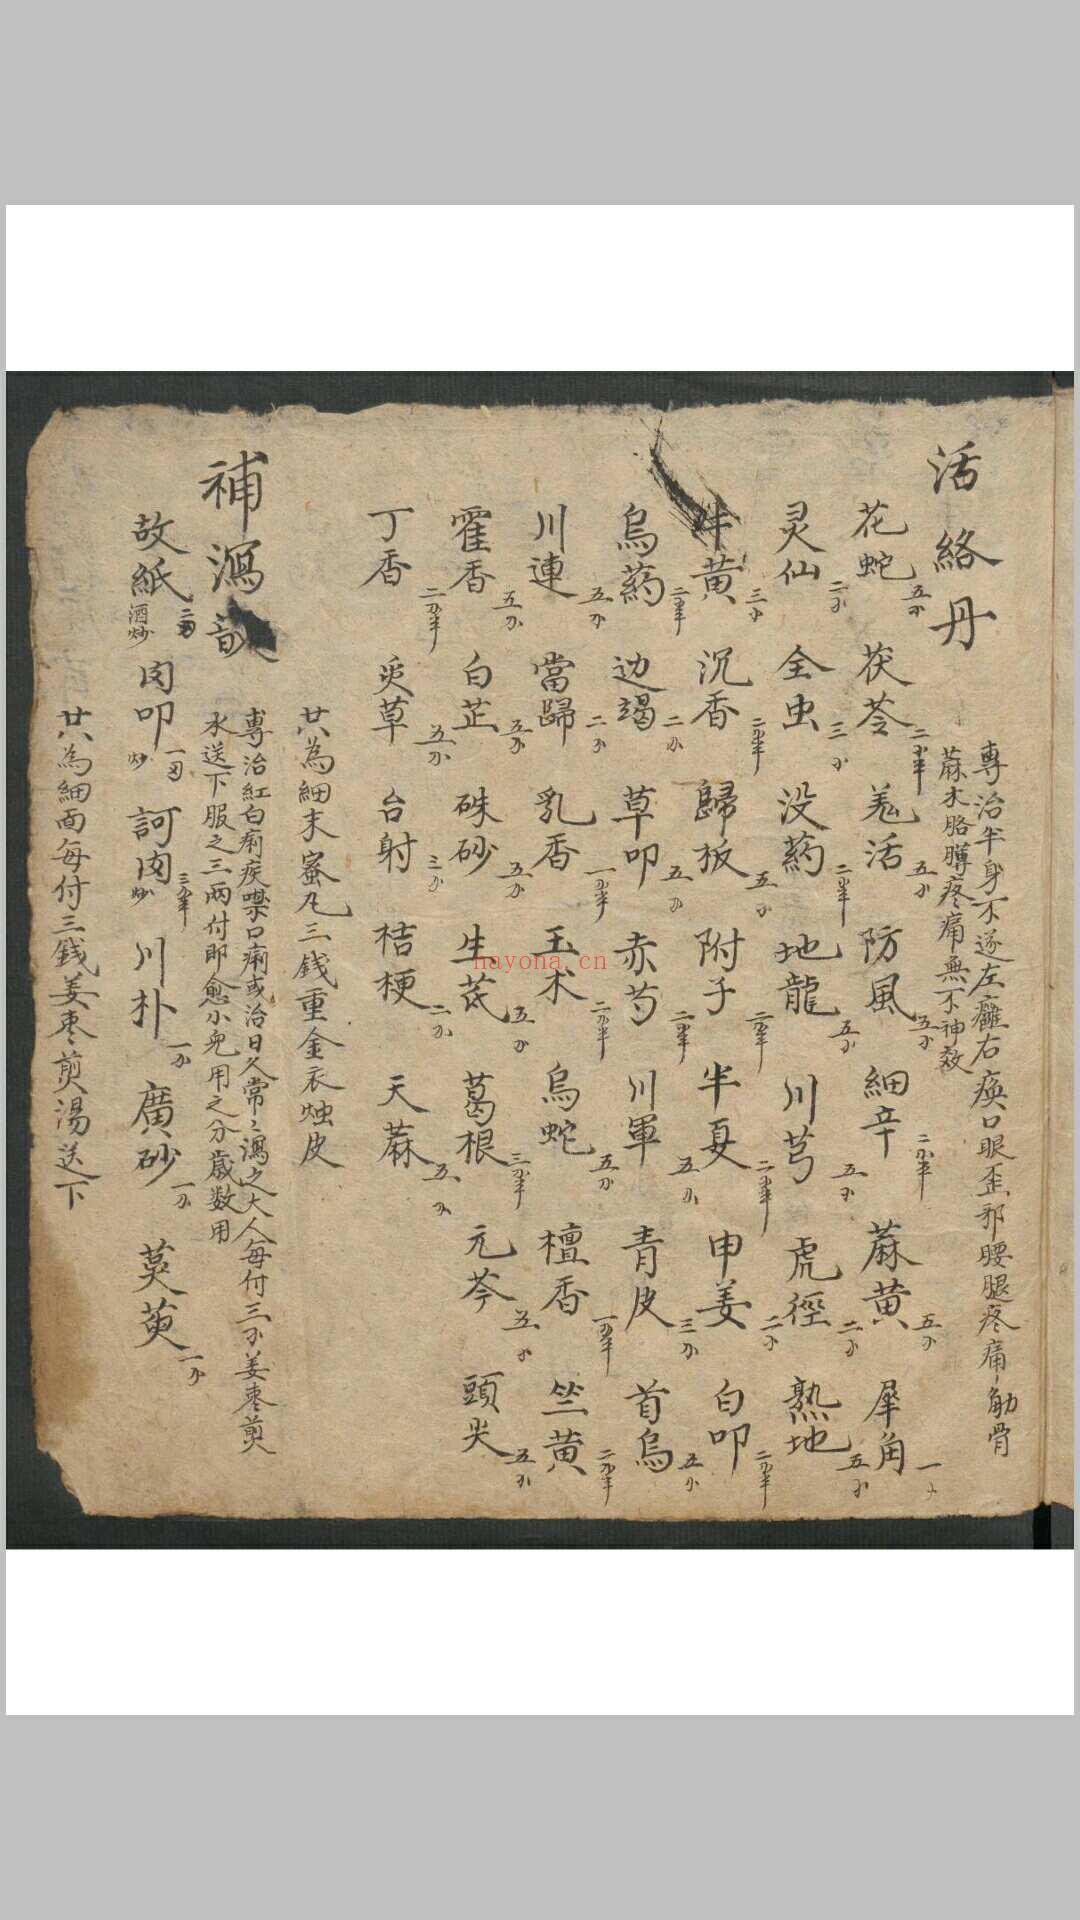 活絡丹
專治半身不遂左癱右瘓口眼歪邪腰腿疼痛觔骨
蔴木胳膊疼痛無不神效
花蛇五分 茯苓二分半 羌活五分 防風五分 細辛二分半 蔴黃五分 犀角一分
灵仙二分 全虫三分 没药二分半 地龍五分 川芎五分 虎徑二分 熟地五分
牛黃三分 沉香二分半 歸板五分 附子二分半 半夏二分半 申姜二分 白叩二分半
烏药二分半 边竭二分 草叩五分 赤芍二分半 川軍五分 青皮三分 首烏五分
川連五分 當歸二分 乳香一分半 玉术二分半 烏蛇五分 檀香一分半 竺黃二分半
霍香五分 白芷五分 硃砂五分 生芪五分 葛根三分半 元芩五分 頭尖五分
丁香二分半 炙草五分 台射三分 桔梗二分 天蔴五分
共為細末蜜丸三錢重金衣烛皮
補瀉
專治紅白痢疾噤口痢或治日久常々瀉之大人每付三分姜棗煎
水送下服之三兩付即愈小兒用之分歲数用
故紙酒炒 肉叩炒 訶肉炒三分半 川朴一分 廣砂一分 萸萸一分
共為細面每付三錢姜棗煎湯送下
hayona.cn